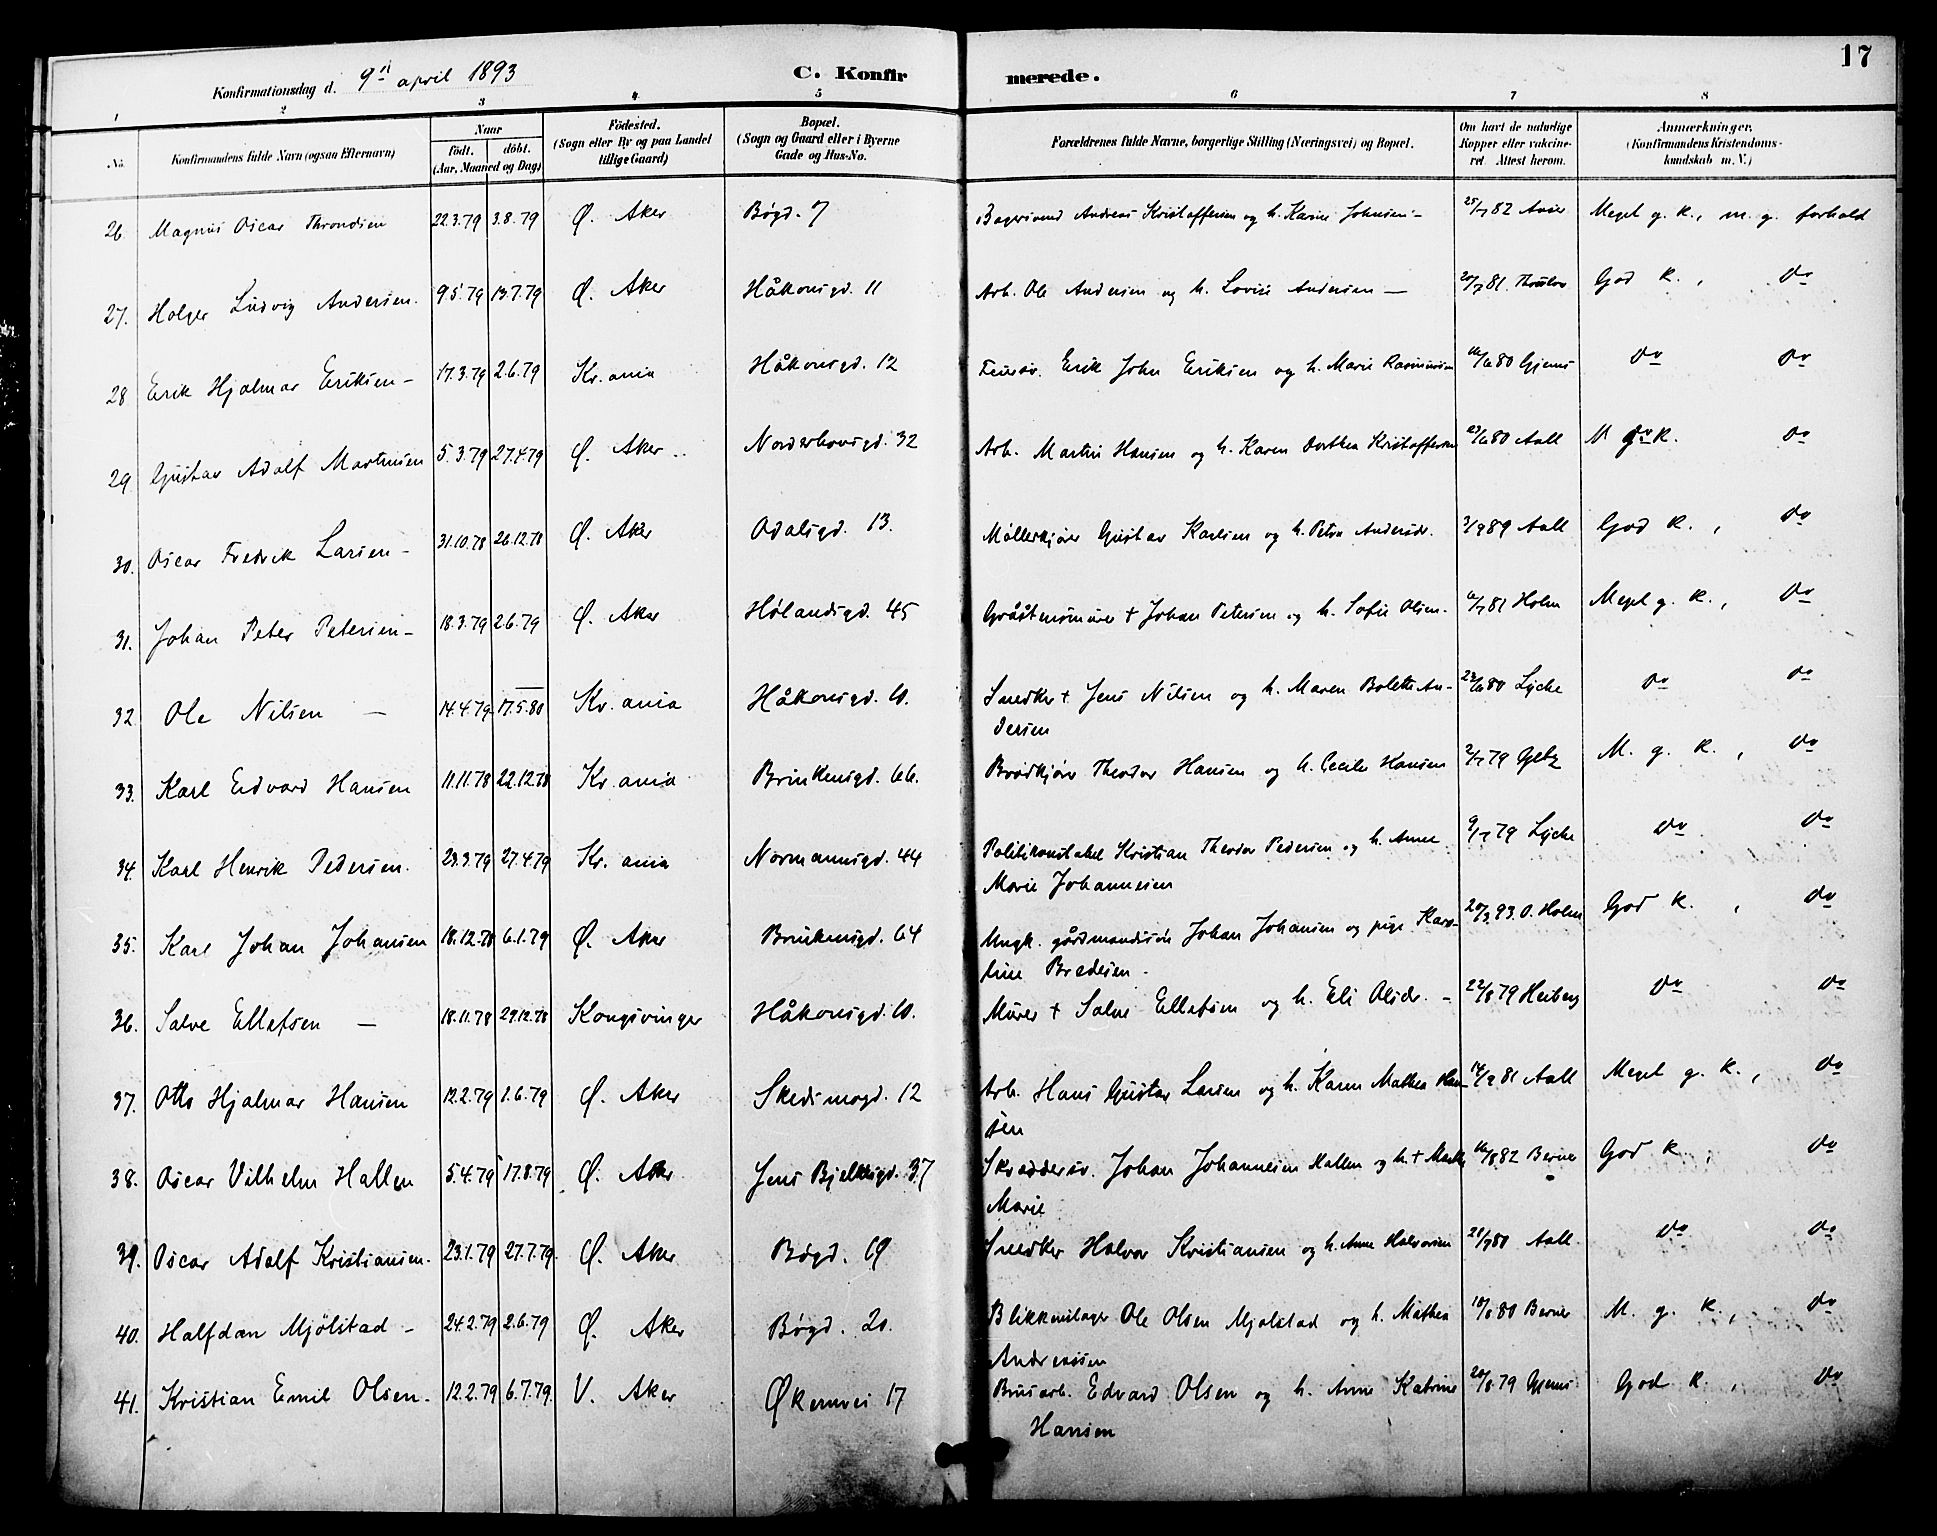 17
Konfirmationsdag d. 9de april 1893 C. Konfir merede.
1 2 3 4 5 6 7 8
No. Konfirmandens fulde Navn (ogsaa Efternavn) Naar födt. döbt. (Aar, Maaned og Dag) Födested. (Sogn eller By og paa Landet tillige Gaard) Bopæl. (Sogn og Gaard eller i Byerne Gade og Hus-No. Forældrenes fulde Navne, borgerlige Stilling (Næringsvei) og Bopæl. Om havt de naturlige Kopper eller vakcineret. Attest herom. Anmærkninger. (Konfirmandens Kristendomskundskab m. V.)
26. Magnus Oscar Throndsen 22.3.79 3.8.79 Ø. Aker Bøgd. 7 Bagersvend Andreas Kristoffersen og h. Karine Johnsen – 25/7 82 Meget g. k., m. g. forhold
27. Holger Ludvig Andersen. 9.5.79 13.7.79 Ø. Aker Håkonsgd. 11 Arb. Ole Andersen og h. Lovise Andersen — 20/7 81. God k., do
28 Erik Hjalmar Eriksen – 17.3.79 2.6.79 Kr.ania Håkonsgd. 12 Erik John Eriksen og h. Marie Rasmussen 80 Gjems do do
29. Gustav Adolf Martinsen 5.3.79 27.4.79 Ø. Aker Norderhovsgd. 32 Arb. Martin Hansen og h. Karen Dorthea Kristoffersen 23/6 80 Aall M g. k. do
30. Oscar Fredrik Larsen – 31.10.78 26.12.78 Ø. Aker Odalsgd. 13. Møllerkjører Gustav Karlsen og h. Petra Andersdr. 3/9 89 Aall God k., do
31. Johan Peter Petersen – 18.3.79 2.6.79 Ø. Aker Hølandsgd. 45 Gråstensmurer + Johan Petersen og h. Sofie Olsen. 81 Holm Meget g. k., do
32 Ole Nilsen — 14.4.79 17.5.80 Kr.ania Håkonsgd. 10. Snedker + Jens Nilsen og h. Maren Bolette An-
dersen 23/6 80 Lyche do do
33. Karl Edvard Hansen 11.11.78 22.12.78 Kr.ania Brinkensgd. 66. Brødkjører Theodor Hansen og h. Cecilie Hansen 2/7 79 Getz M. g. k., do
34. Karl Henrik Pedersen. 23.3.79 27.4.79 Kr.ania Normannsgd. 44 Politikonstabel Kristian Theodor Pedersen og h. Anne
Marie Johannesen 9/7 79 Lyche do do
35. Karl Johan Johansen 18.12.78 6.1.79 Ø. Aker Brinkensgd. 64 Ungk. gårdmandssøn Johan Johansen og pige Karo-
line Bredesen – 20/3 93. O. Holm God k., do
36. Salve Ellefsen — 18.11.78 29.12.78 Kongsvinger Håkonsgd. 10. Murer + Salve Ellefsen og h. Eli Olsdr. – 22/8 79 Heiberg do do
37. Otto Hjalmar Hansen 12.2.79 1.6.79 Ø. Aker Skedsmogd. 12 Arb. Hans Gustav Larsen og h. Karen Mathea Han-
sen 14/9 81 Aall Meget g. k., do
38. Oscar Vilhelm Hallen 5.4.79 17.8.79 Ø. Aker Jens Bjelkesgd. 37 Skræddersv. Johan Johannesen Hallen og h. +
Marie 82 Berner God k., do
39. Oscar Adolf Kristiansen. 23.1.79 27.7.79. Ø. Aker Bøgd. 19 Snedker Halvor Kristiansen og h. Anne Halvorsen 21/9 80 Aall. do do
40. Halfdan Mjølstad – 24.2.79 2.6.79 Ø. Aker Bøgd. 20. Blikkenslager Ole Olsen Mjølstad og h. Mathea
Andreassen 18/8 80 Berner M. g. k., do
41. Kristian Emil Olsen. 12.2.79 6.7.79. V. Aker Økernvei 17 Brusarb. Edvard Olsen og h. Anne Katrine
Hansen 20/8 79 Gjems God k., do